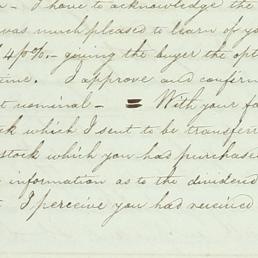 I have to acknowledge the
was much pleased to learn of yo
40%- giving the buyer the opt
time. I approve and confirm
t nominal - = With your fa
ck which I sent to be transferre
stock which you had purchase
information as to the dividend
I perceive you had received